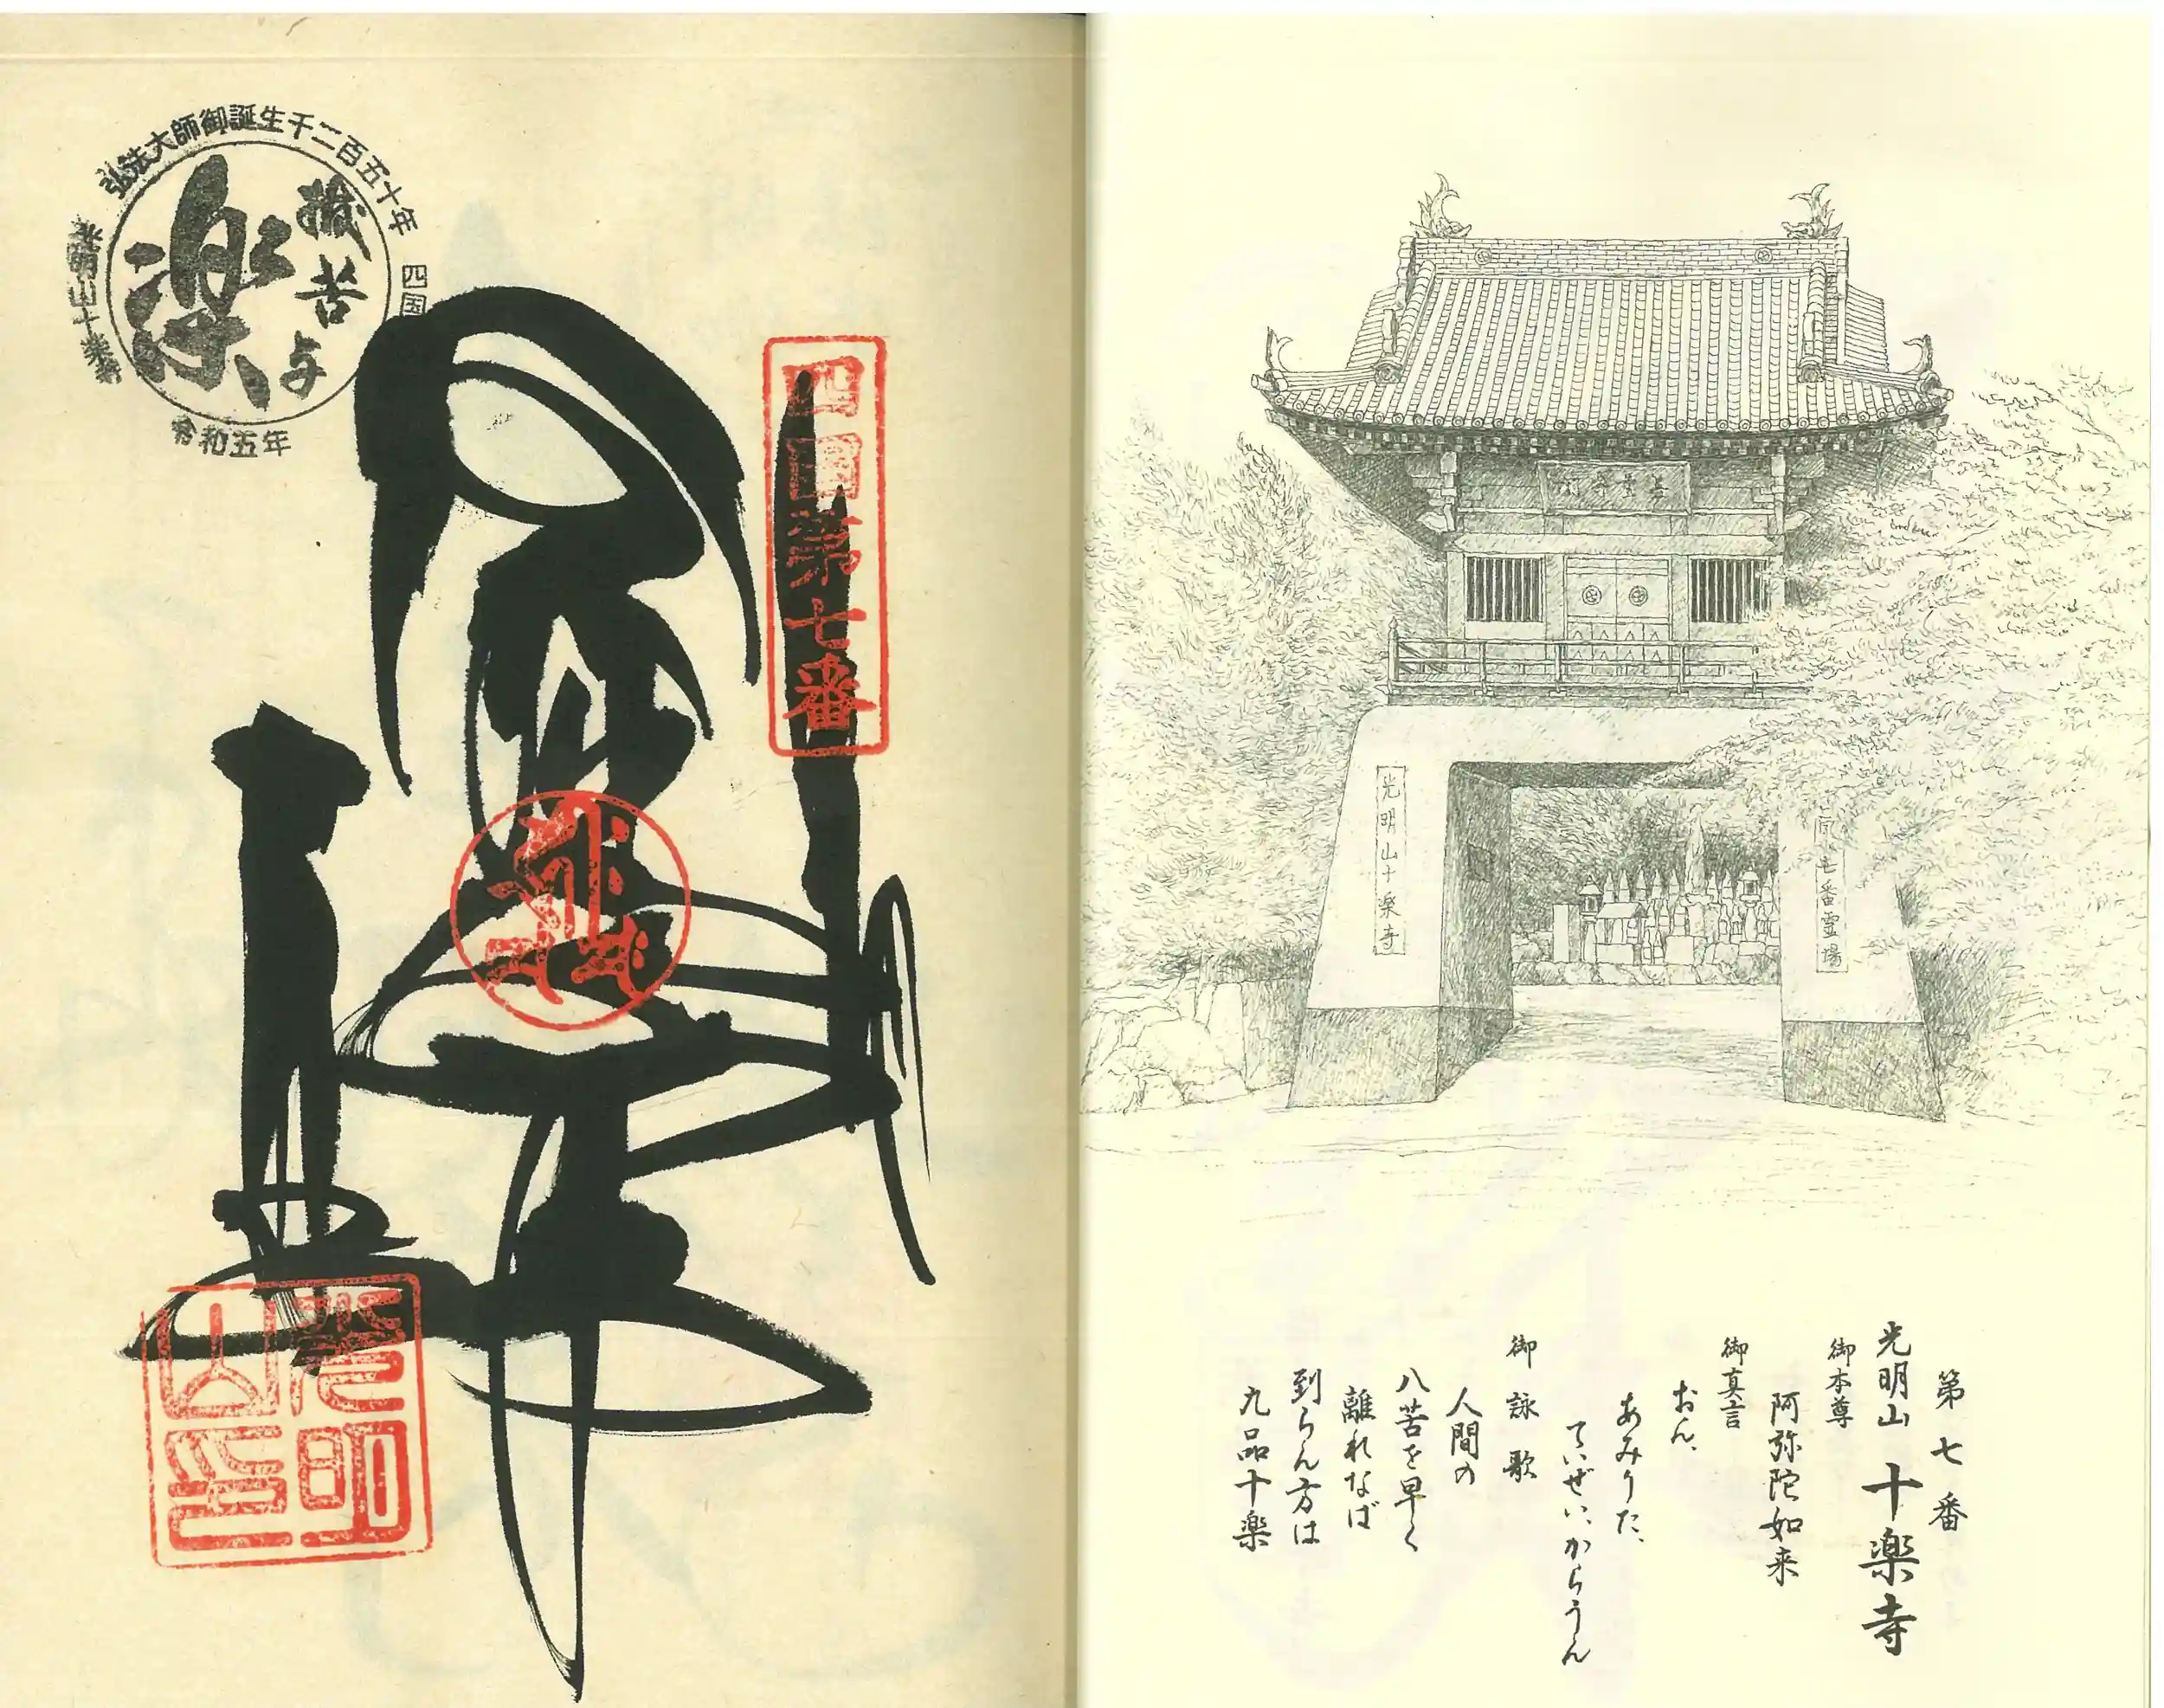 第七番
光明山 十楽寺
御本尊
阿弥陀如来
御真言
おん、
あみりた、
ていぜい、からうん
御詠歌
人間の
八苦を早く
離れなば
到らん方は
九品十楽
光明山十楽寺
七番霊場
四国第七番
弘法大師御誕生千二百五十年
四国
光明山十楽寺
令和五年
苦与
楽
光明
山印